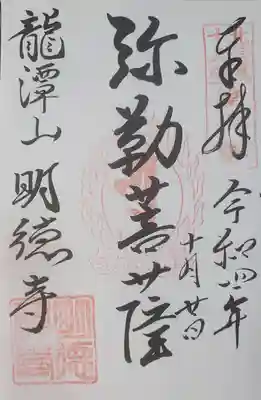 奉拝
令和四年
十月廿日
弥勒菩薩
龍潭山明徳寺
明徳寺